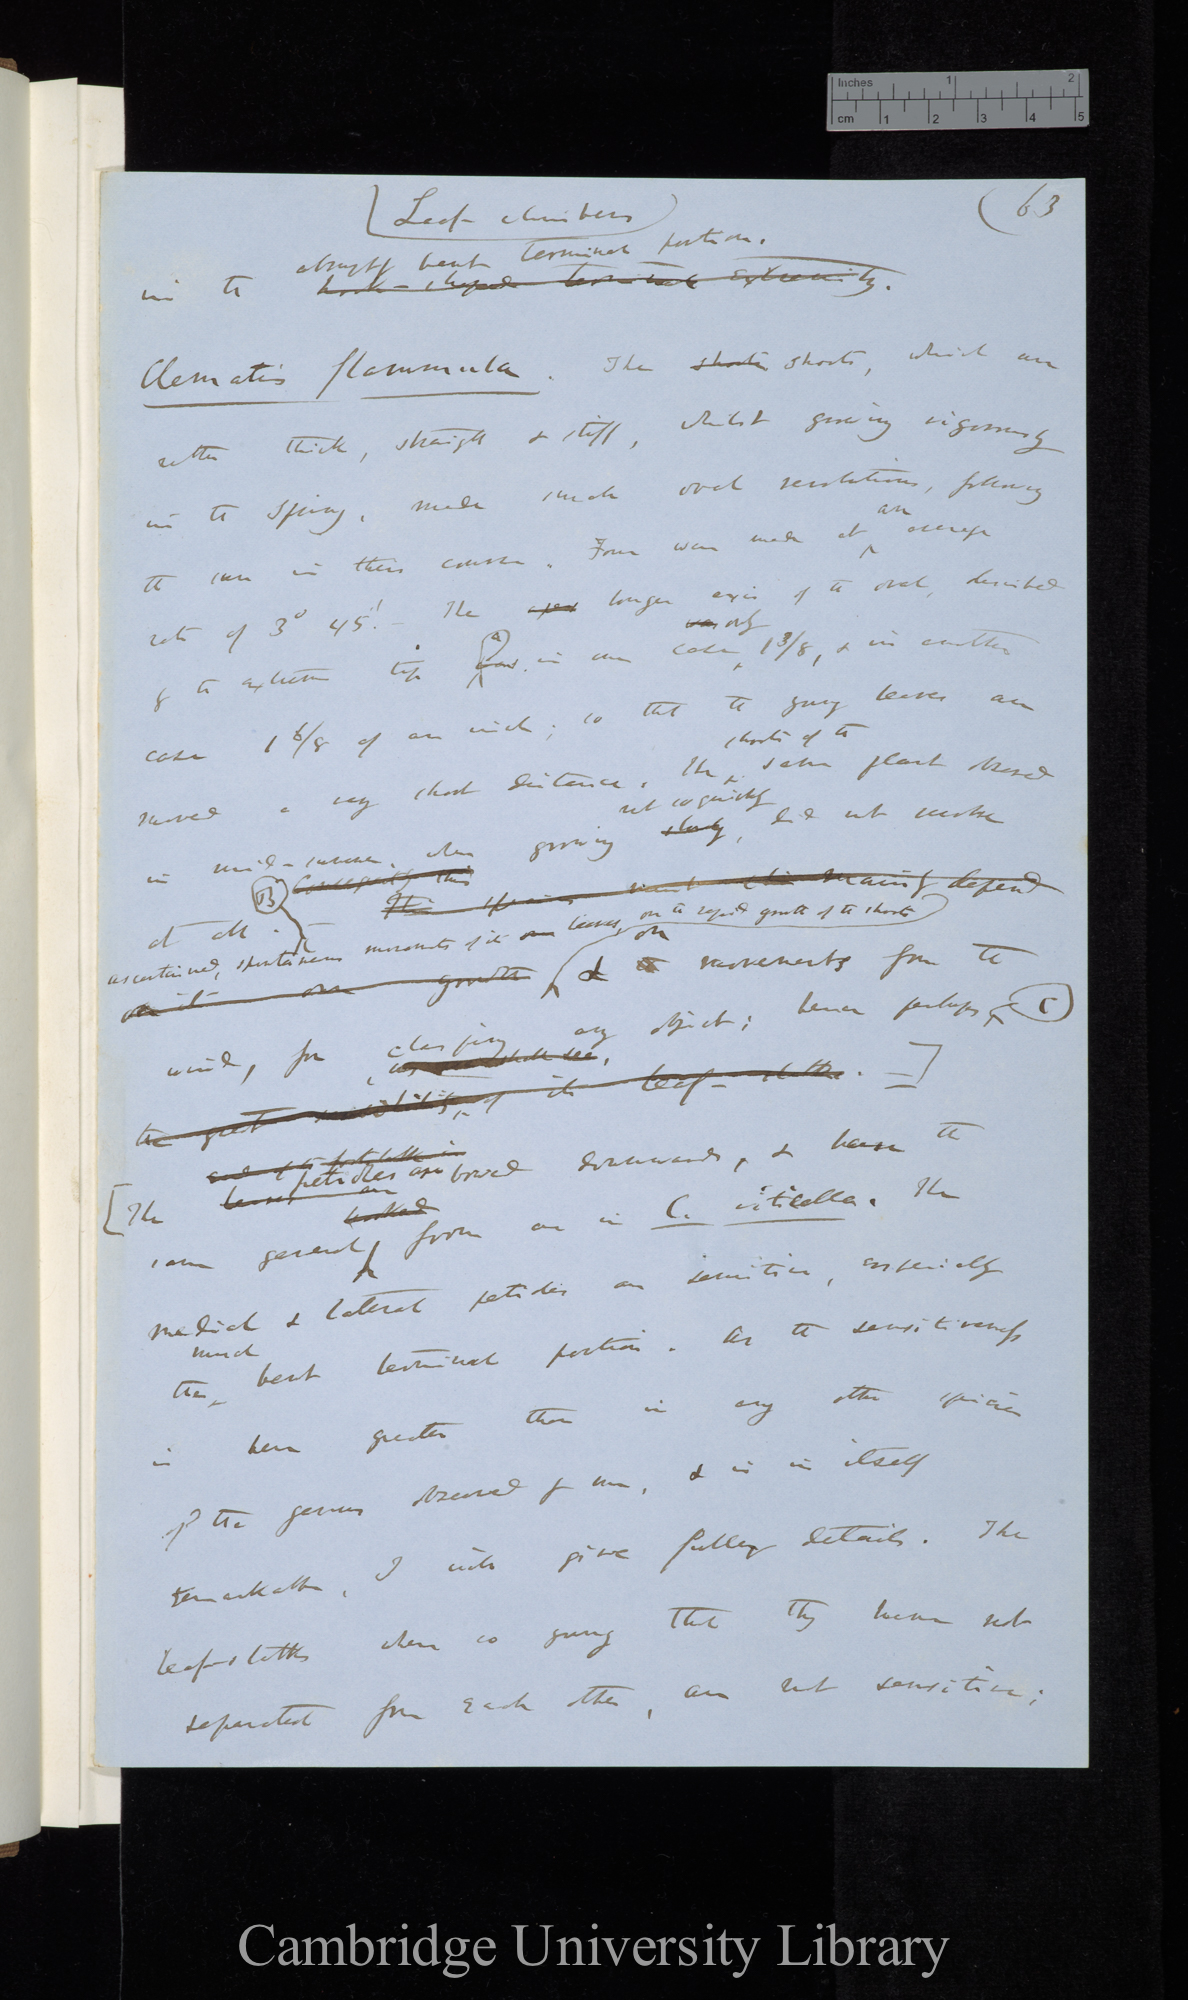 Inches 1 2
cm 1 2 3 4 5
Leaf-climbers
(63
abruptly bent terminal portion.
in the hook-shaped terminal extremity.
Clematis flammula. The shoots shoots, which are
rather thick, straight & stiff, whilst growing vigorously
in the spring, made small oval revolutions, following
an
the sun in their course. Four were made at average
rate of 3° 45'.— The longer axis of the oval, described
was only
by the extreme tip was in one case 1 3/8, & in another
case 1 6/8 of an inch; so that the young leaves are
shoots of the
moved a very short distance. The same plant observed
not so quickly
in mid-summer, when growing slowly, did not revolve
B Consequently this
at all. This species must mainly depend
ascertained, spontaneous movements of its own leaves, on the rapid growth of the shoots
on
on its own growth & to movements from the
wind, for clasping any object; hence perhaps C
the great sensibility of its leaf-stalks.
petioles are
[The leaves are bowed downwards, & have the
hooked
same general form as in C. viticella. The
medial & lateral petioles are sensitive, especially
much
the bent terminal portion. As the sensitiveness
is here greater than in any other species
of the genus observed by me, & is in itself
remarkable, I will give fuller details. The
leaf-stalks when so young that they have not
separated from each other, are not sensitive;
Cambridge University Library